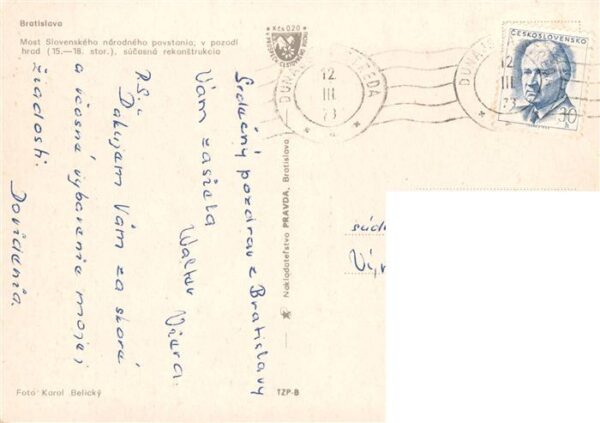 Bratislava
Most Slovenského národného povstania; v pozadí
hrad (15.—18. stor.), súčasná rekonštrukcia
Kčs 0,20
ČESKOSLOVENSKO
30
h
12.
III.
73
12
III.
73
Srdečný pozdrav z Bratislavy
Vám zasiela
Walter Viera.
P.S.:
Ďakujem Vám za skoré
a včasné vybavenie mojej
žiadosti.
Dovidenia.
Nakladateľstvo PRAVDA, Bratislava
súd
Foto Karol Belický
TZP-B